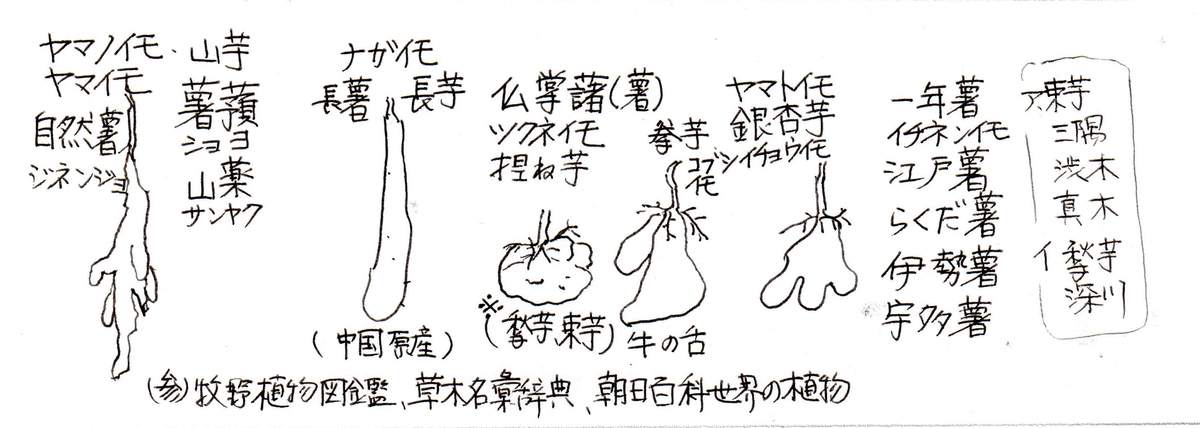 ヤマノイモ・山芋
ヤマイモ
自然薯
ジネンジョ
薯蕷
ショヨ
山薬
サンヤク
ナガイモ
長薯 長芋
(中国原産)
仏掌藷(薯)
ツクネイモ
捏ね芋
※
(芋、束芋)
拳芋
コブシイモ
牛の舌
ヤマトイモ
銀杏芋
イチョウイモ
一年薯
イチネンイモ
江戸薯
らくだ薯
伊勢薯
宇多薯
ア、束芋
三隅
渋木
真木
イ 芋
深川
(参)牧野植物図鑑、草木名彙辞典、朝日百科世界の植物